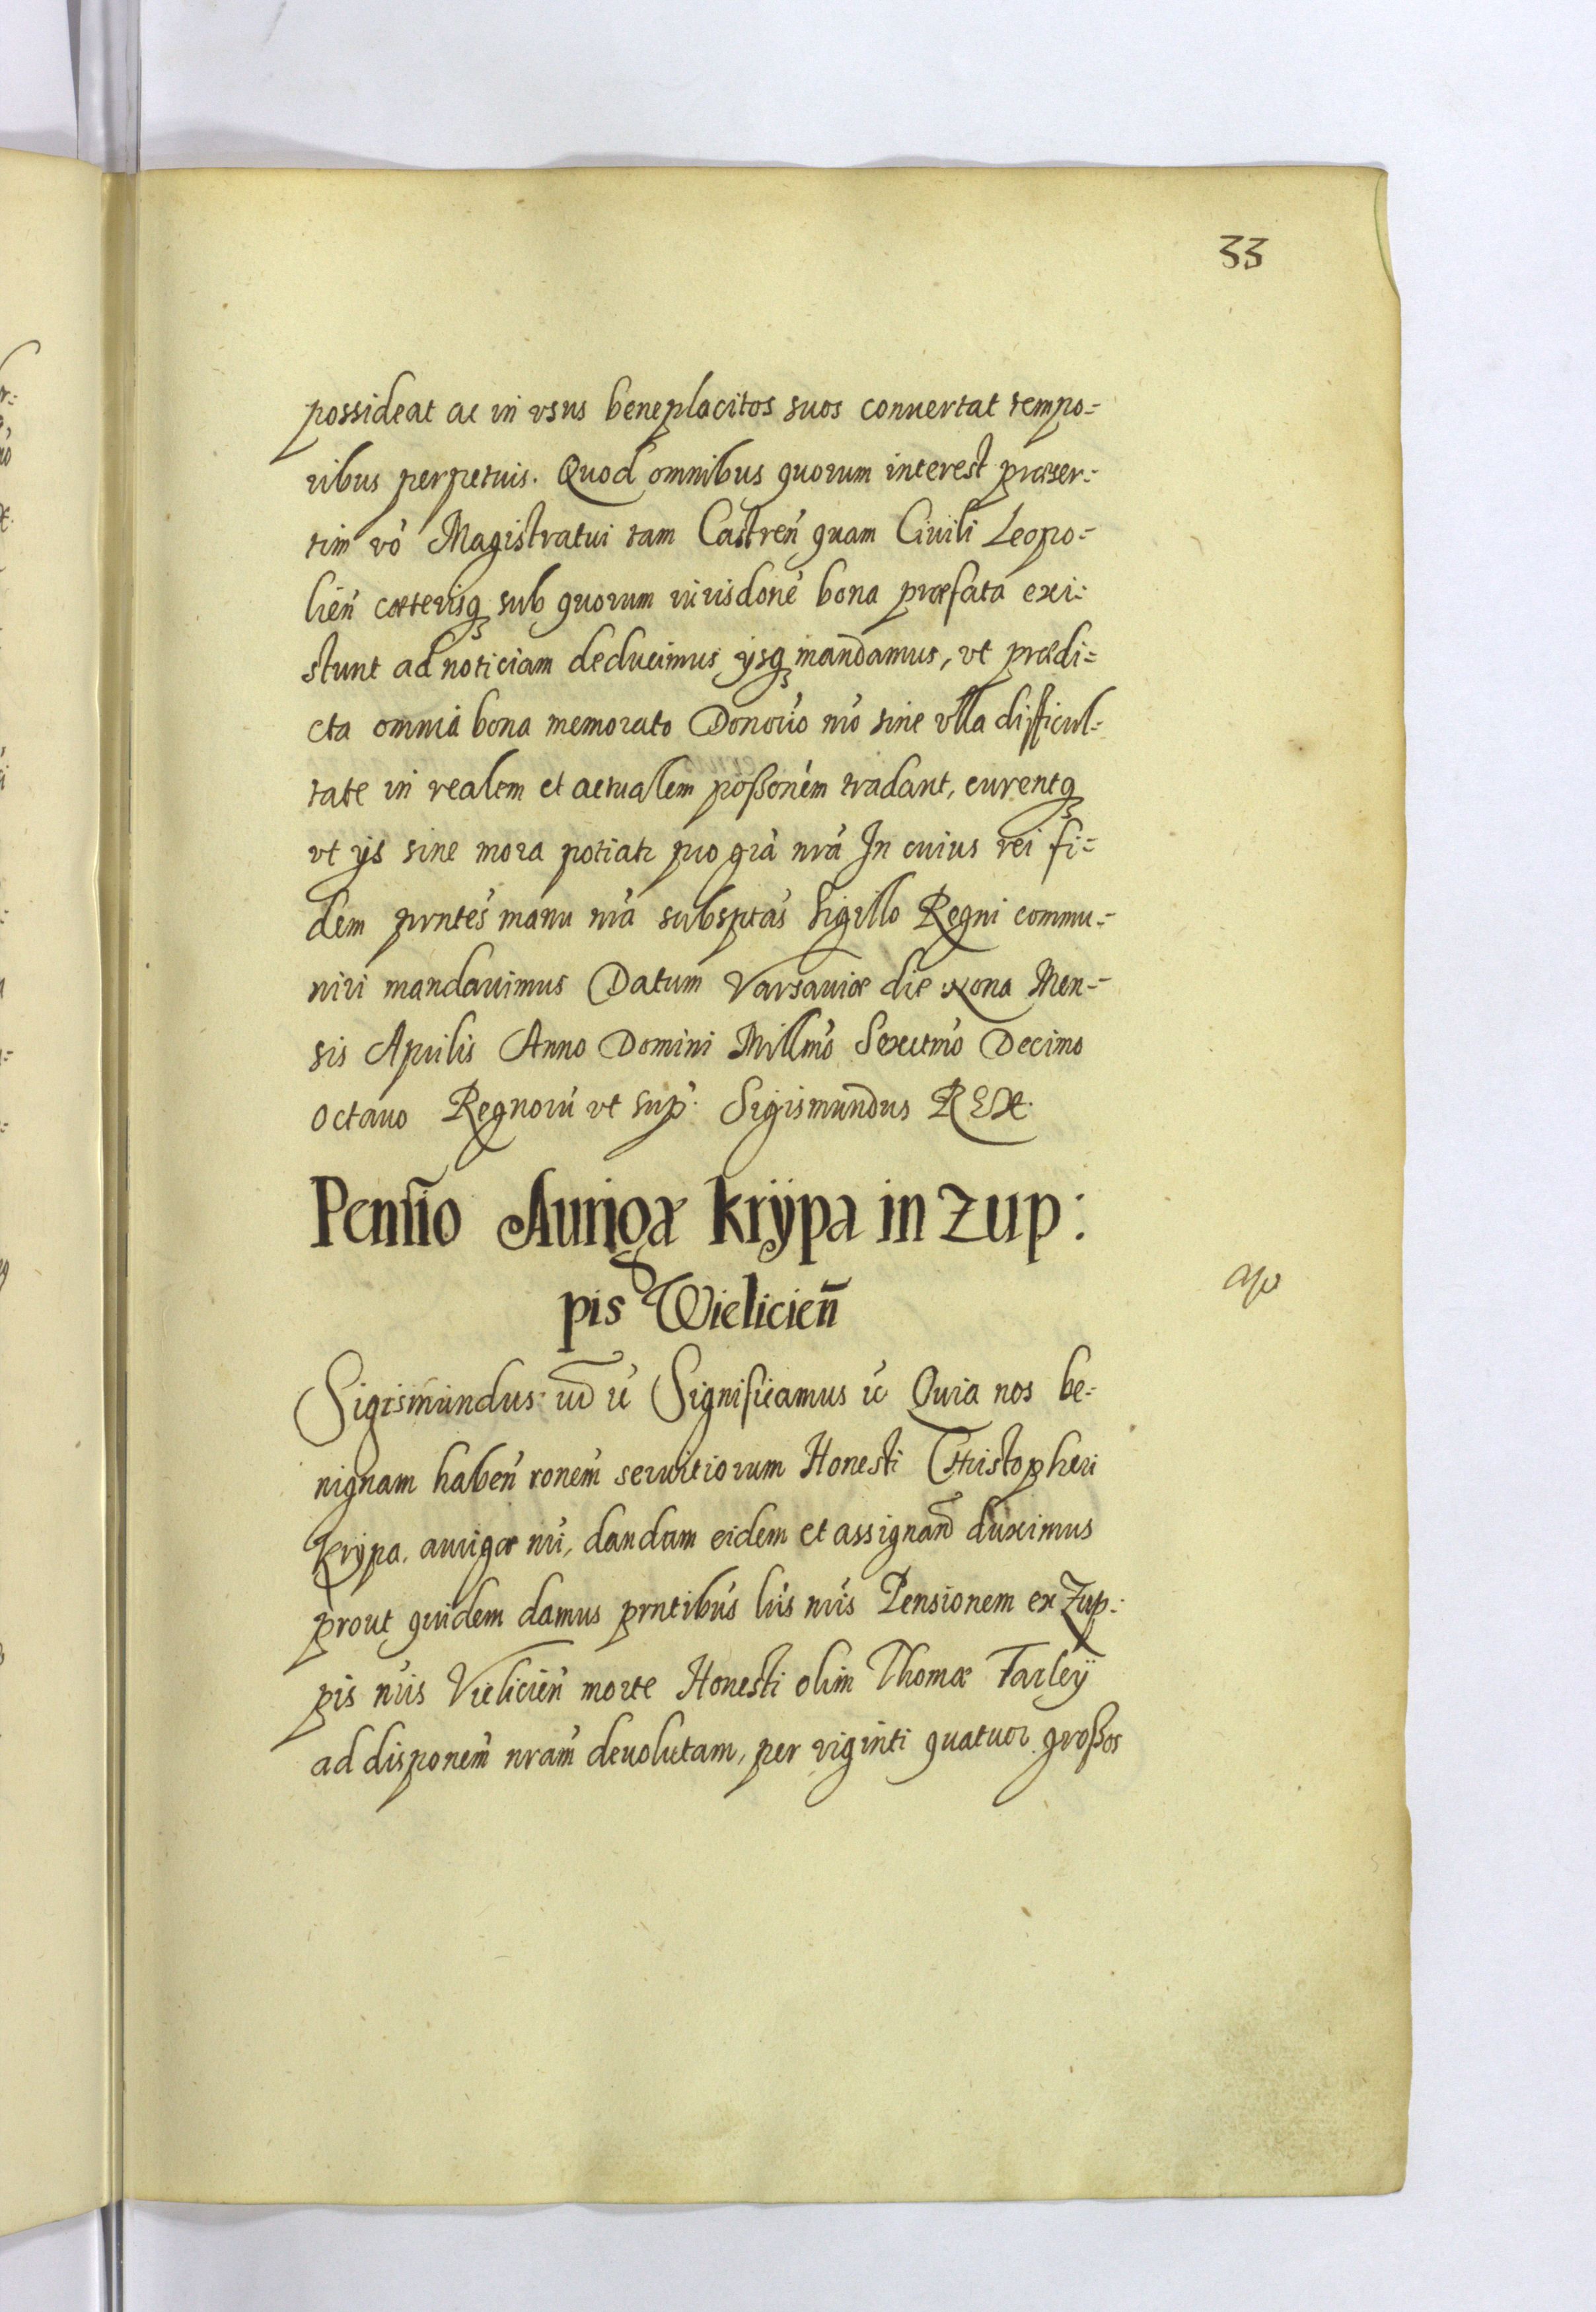 33
possideat ac in vsus beneplacitos suos conuertat tempo=
ribus perpetuis. Quod omnibus quorum interest præser=
tim vó Magistratui tam Castreń quam Ciuili Leopo=
lień cæterisq₃ sub quorum iurisdoné bona præfata exi=
stunt ad noticiam deducimus ijsq₃ mandamus, vt prædi=
cta omnia bona memorato Donorio nró sine vlla difficul=
tate in realem et actualem poßoném tradant, curentq₃
vt ijs sine mora potiatr pro grá nrá In cuius rei fi=
dem prntes manu nrá subsptas Sigillo Regni commu=
niri mandauimus Datum Varsauiæ die Nona Men=
sis Aprilis Anno Domini Millmó Sexctmó Decimo
octauo Regnorú vt sup: Sigismundus REX.
Pensio Aurigæ Krÿpa in Zup:
pis Wielicień
Sigismundus Significamus Quia nos be=
nignam habeń ronem seruitiorum Honesti Christopheri
Krÿpa, aurigæ nri, dandam eidem et assignand duximus
prout quidem damus prntibus lris nris Pensionem ex Zup=
pis nris Vielicień morte Honesti olim Thomæ Farleÿ
ad disponem nram deuolutam, per viginti quatuor großos